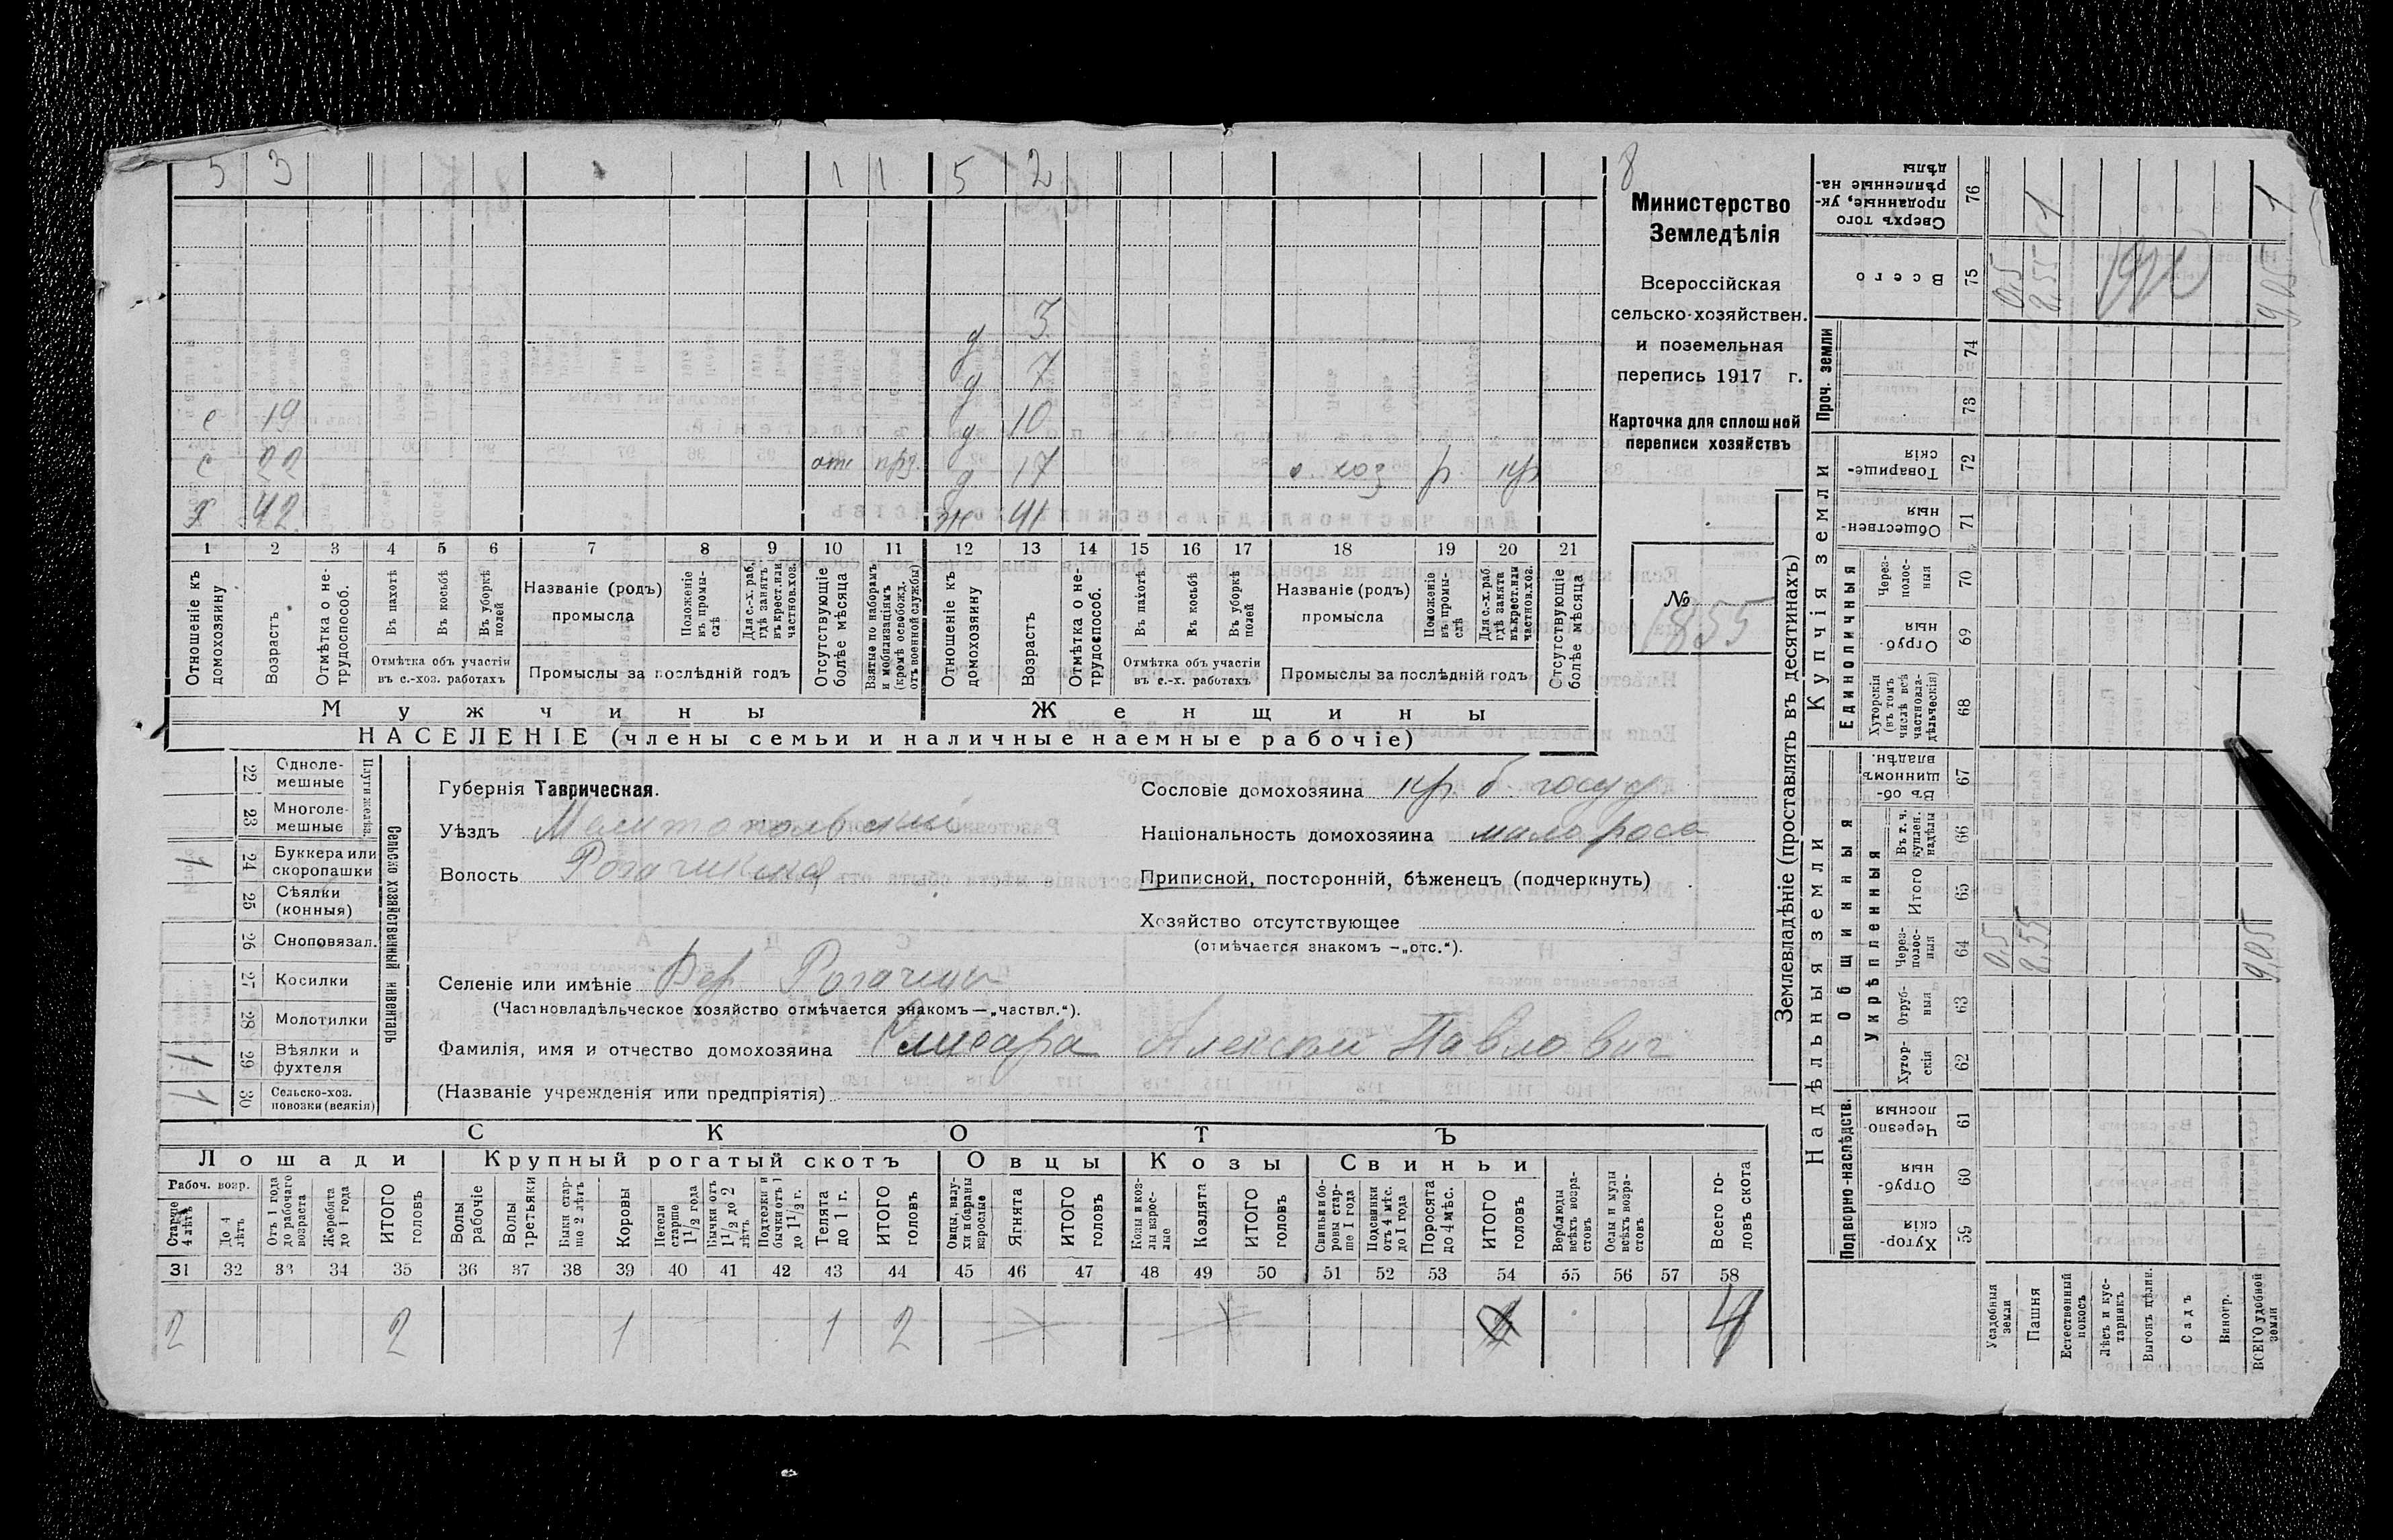 5 3 1 1 5 2 8
д 3
д 7
с 19 д 10
с 20 отс пр. д 17 с. хоз р. кр
х 42 ж 41
1 2 3 4 5 6 7 8 9 10 11 12 13 14 15 16 17 18 19 20 21
Отношеніе къ домохозяину
Возрастъ
Отмѣтка о нетрудоспособ.
Въ пахотѣ
Въ косьбѣ
Въ уборкѣ полей
Отмѣтка объ участіи въ с.-хоз. работахъ
Названіе (родъ) промысла
Положеніе въ промыслѣ
Для с.-х. раб., гдѣ занятъ въ крест. или частнов. хоз.
Промыслы за послѣдній годъ
Отсутствующіе болѣе мѣсяца
Взятые по наборамъ и мобилизаціямъ (кромѣ освобожд. отъ военной службы)
Отношеніе къ домохозяину
Возрастъ
Отмѣтка о нетрудоспособ.
Въ пахотѣ
Въ косьбѣ
Въ уборкѣ полей
Отмѣтка объ участіи въ с.-х. работахъ
Названіе (родъ) промысла
Положеніе въ промыслѣ
Для с.-х. раб. гдѣ занята въ крест. или частнов. хоз.
Промыслы за послѣдній годъ
Отсутствующіе болѣе мѣсяца
Мужчины
Женщины
НАСЕЛЕНІЕ (члены семьи и наличные наемные рабочіе)
Министерство
Земледѣлія
Всероссійская
сельско-хозяйствен.
и поземельная
перепись 1917 г.
Карточка для сплошной
переписи хозяйствъ
№
1855
Сельско хозяйственный инвентарь
Плуги желѣз.
22 Однолемешные
23 Многолемешные
24 Буккера или скоропашки 1
25 Сѣялки (конныя)
26 Сноповязал.
27 Косилки
28 Молотилки
29 Вѣялки и фухтеля 1
30 Сельско-хоз. повозки (всякія) 1
Губернія Таврическая.
Уѣздъ Мелитопольскій
Волость Рогачикская
Сословіе домохозяина кр. б. госуд
Національность домохозяина малоросс
Приписной, посторонній, бѣженецъ (подчеркнуть)
Хозяйство отсутствующее
(отмѣчается знакомъ —„отс.“).
Селеніе или имѣніе Вер Рогачик
(Частновладѣльческое хозяйство отмѣчается знакомъ—„частвл.“).
Фамилія, имя и отчество домохозяина Алексѣй Павлович
(Названіе учрежденія или предпріятія)
СКОТЪ
Лошади
Крупный рогатый скотъ
Овцы
Козы
Свиньи
Рабоч. возр.
Старше 4 лѣтъ
До 4 лѣтъ
Отъ 1 года до рабочаго возраста
Жеребята до 1 года
ИТОГО головъ
Волы рабочіе
Волы третьяки
Быки старше 2 лѣтъ
Коровы
Нетели старше 1 1/2 года
Бычки отъ 1 1/2 до 2 лѣтъ
Подтелки и бычки отъ 1 до 1 1/2 г.
Телята до 1 г.
ИТОГО головъ
Овцы, валухи и бараны взрослые
Ягнята
ИТОГО головъ
Козы и козлы взрослые
Козлята
ИТОГО головъ
Свиньи и боровы старше 1 года
Подсвинки отъ 4 мѣс. до 1 года
Поросята до 4 мѣс.
ИТОГО головъ
Верблюды всѣхъ возрастовъ
Ослы и мулы всѣхъ возрастовъ
Всего головъ скота
31 32 33 34 35 36 37 38 39 40 41 42 43 44 45 46 47 48 49 50 51 52 53 54 55 56 57 58
2 2 1 1 2 4
Землевладѣніе (проставлять въ десятинахъ)
Надѣльныя земли
Купчія земли
Проч. земли
Подворно-наслѣдств.
Общинныя
Укрѣпленныя
Единоличныя
Хуторскія 59
Отрубныя 60
Черезполосныя 61
Хуторскія 62
Отрубныя 63
Черезполосныя 64
Итого 65
Въ т. ч. куплен. надѣлы 66
Въ общинномъ владѣн. 67
Хуторскія (въ томъ числѣ всѣ частновладѣльческія) 68
Отрубныя 69
Черезполосныя 70
Общественныя 71
Товарищескія 72
73
74
Всего 75
Сверхъ того проданные, укрѣпленные надѣлы 76
Усадебныя земли 0,5 0,5
Пашня 8,55 8,55 1
Естественный покосъ
Лѣсъ и кустарникъ
Выгонъ цѣлин.
Садъ
Виногр.
ВСЕГО удобной земли 9,05 9,05 1